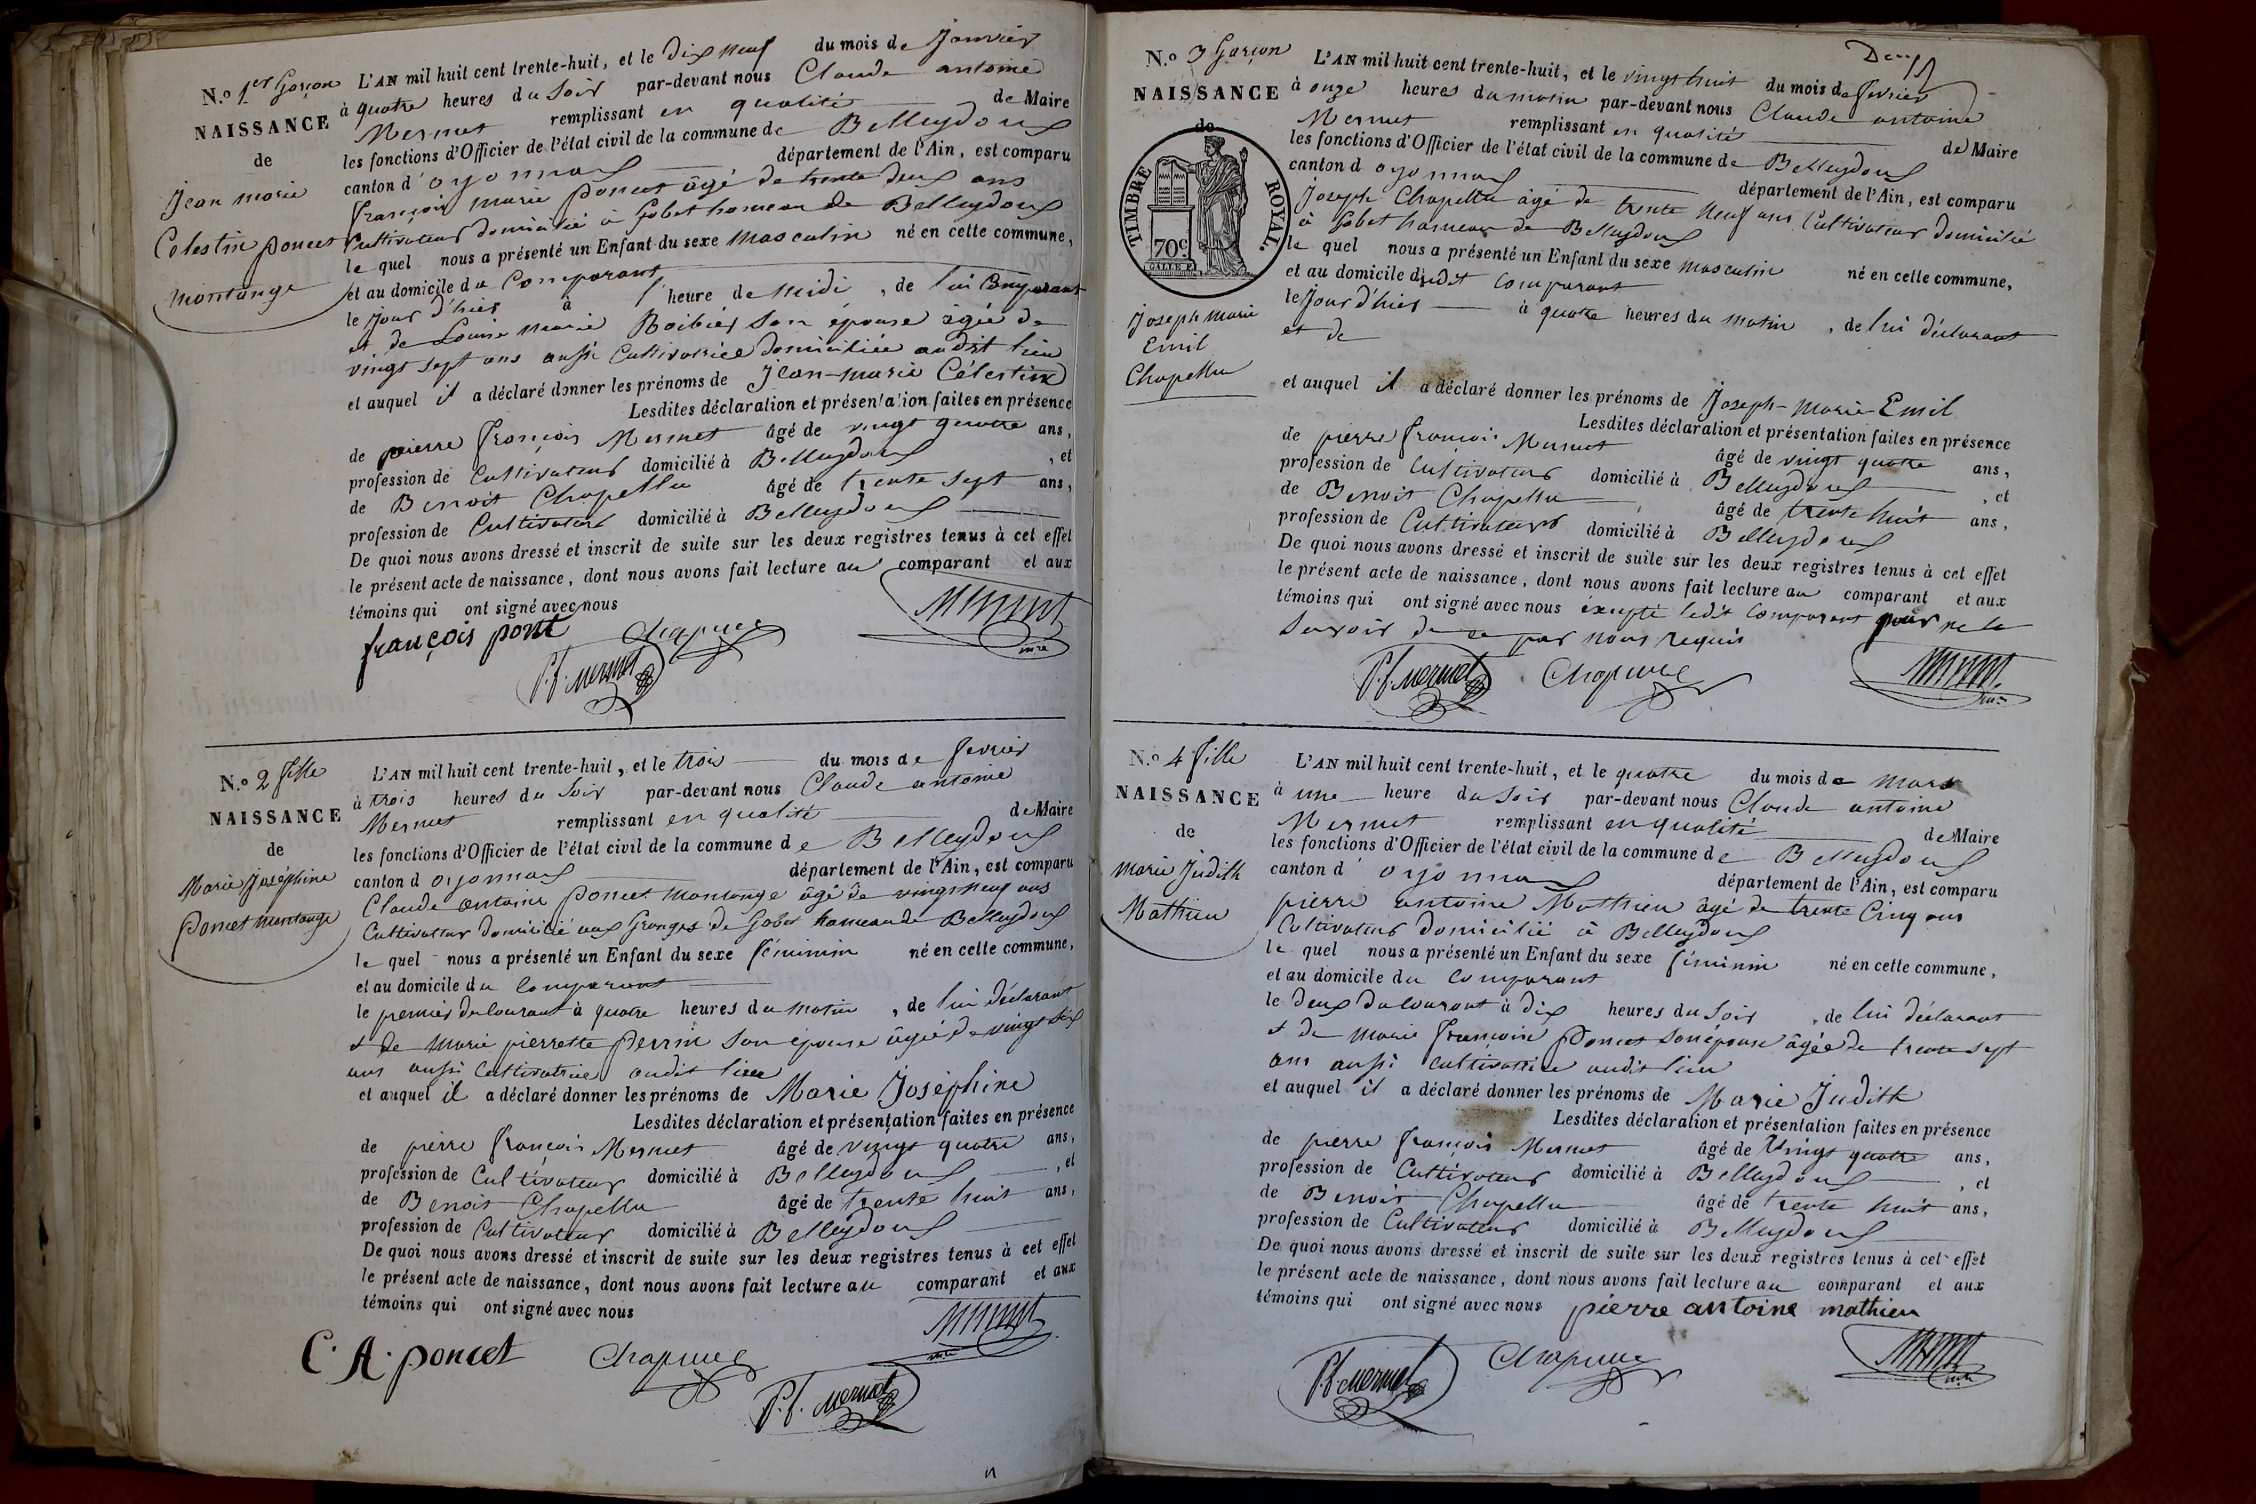 N.o 1er Garçon
NAISSANCE
de
Jean marie
Celestin poncet
montange
L'AN mil huit cent trente-huit, et le dix neuf du mois de Janvier
à quatre heures du Soir par-devant nous Claude antoine
Mermet remplissant en qualité de Maire
les fonctions d'Officier de l'état civil de la commune de Belleydoux
canton d'oyonnax département de l'Ain, est comparu
françois marie poncet âgé de trente deux ans
Cultivateur domicilié à Gobet hameau de Belleydoux
le quel nous a présenté un Enfant du sexe masculin né en cette commune,
et au domicile du Comparant
le Jour d'hier à 1 heure de midi, de lui Comparant
et de Louise marie Roibier son épouse âgée de
vingt sept ans aussi Cultivatrice domiciliée audit lieu
et auquel il a déclaré donner les prénoms de Jean-marie Célestin
Lesdites déclaration et présentation faites en présence
de pierre françois Mermet âgé de vingt quatre ans,
profession de Cultivateur domicilié à Belleydoux, et
de Benoit Chapellu âgé de trente sept ans,
profession de Cultivateur domicilié à Belleydoux
De quoi nous avons dressé et inscrit de suite sur les deux registres tenus à cet effet
le présent acte de naissance, dont nous avons fait lecture au comparant et aux
témoins qui ont signé avec nous
françois pont
P. f. mermet
mre
N.o 2 fille
NAISSANCE
de
Marie Joséphine
Poncet montange
L'AN mil huit cent trente-huit, et le trois du mois de fevrier
à trois heures du Soir par-devant nous Claude antoine
Mermet remplissant en qualité de Maire
les fonctions d'Officier de l'état civil de la commune de Belleydoux
canton d oyonnax département de l'Ain, est comparu
Claude antoine poncet montange âgé de vingt neuf ans
Cultivateur domicilié aux Granges de Gobet hameau de Belleydoux
le quel nous a présenté un Enfant du sexe féminin né en cette commune,
et au domicile du Comparant
le premier du Courant à quatre heures du matin, de lui déclarant
et de marie pierrette perrin son épouse âgée de vingt six
ans aussi Cultivatrice audit lieu
et auquel il a déclaré donner les prénoms de Marie Joséphine
Lesdites déclaration et présentation faites en présence
de pierre françois Mermet âgé de vingt quatre ans,
profession de Cultivateur domicilié à Belleydoux, et
de Benoit Chapellu âgé de trente huit ans,
profession de Cultivateur domicilié à Belleydoux
De quoi nous avons dressé et inscrit de suite sur les deux registres tenus à cet effet
le présent acte de naissance, dont nous avons fait lecture au comparant et aux
témoins qui ont signé avec nous
C. A. poncet
P. f. mermet
N.o 3 Garçon
NAISSANCE
de
TIMBRE ROYAL.
70c
Joseph Marie
Emil
Chapellu
L'AN mil huit cent trente-huit, et le vingt huit du mois de fevrier
à onze heures du matin par-devant nous Claude antoine
Mermet remplissant en qualité de Maire
les fonctions d'Officier de l'état civil de la commune de Belleydoux
canton d oyonnax département de l'Ain, est comparu
Joseph Chapellu âgé de trente neuf ans Cultivateur domicilié
à Gobet hameau de Belleydoux
le quel nous a présenté un Enfant du sexe masculin né en cette commune,
et au domicile dudit Comparant
le Jour d'hier à quatre heures du matin, de lui déclarant
et de
et auquel il a déclaré donner les prénoms de Joseph-Marie-Emil
Lesdites déclaration et présentation faites en présence
de pierre françois Mermet âgé de vingt quatre ans,
profession de Cultivateur domicilié à Belleydoux, et
de Benoit Chapellu âgé de trente huit ans,
profession de Cultivateur domicilié à Belleydoux
De quoi nous avons dressé et inscrit de suite sur les deux registres tenus à cet effet
le présent acte de naissance, dont nous avons fait lecture au comparant et aux
témoins qui ont signé avec nous excepté ledit Comparant pour ne le
savoir de ce par nous requis
P. f. mermet
N.o 4 fille
NAISSANCE
de
Marie Judith
Mathieu
L'AN mil huit cent trente-huit, et le quatre du mois de mars
à une heure du Soir par-devant nous Claude antoine
Mermet remplissant en qualité de Maire
les fonctions d'Officier de l'état civil de la commune de Belleydoux
canton d'oyonnax département de l'Ain, est comparu
pierre antoine Mathieu âgé de trente Cinq ans
Cultivateur domicilié à Belleydoux
le quel nous a présenté un Enfant du sexe féminin né en cette commune,
et au domicile du Comparant
le deux du Courant à dix heures du Soir, de lui déclarant
et de marie françoise poncet son épouse âgée de trente sept
ans aussi Cultivatrice audit lieu
et auquel il a déclaré donner les prénoms de Marie Judith
Lesdites déclaration et présentation faites en présence
de pierre françois Mermet âgé de Vingt quatre ans,
profession de Cultivateur domicilié à Belleydoux, et
de Benoit Chapellu âgé de trente huit ans,
profession de Cultivateur domicilié à Belleydoux
De quoi nous avons dressé et inscrit de suite sur les deux registres tenus à cet effet
le présent acte de naissance, dont nous avons fait lecture au comparant et aux
témoins qui ont signé avec nous pierre antoine mathieu
P. f. mermet